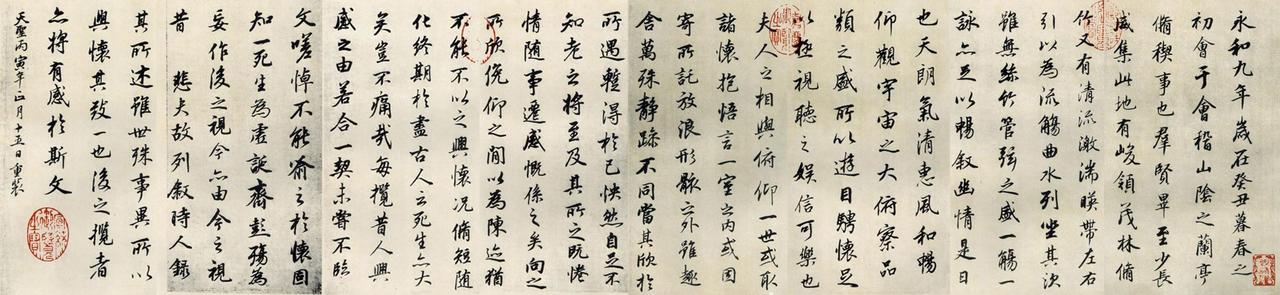 永和九年歲在癸丑暮春之
初會于會稽山陰之蘭亭
脩稧事也羣賢畢至少長
咸集此地有峻領茂林脩
竹又有清流激湍暎帶左右
引以為流觴曲水列坐其次
雖無絲竹管弦之盛一觴一
詠亦足以暢敘幽情是日
也天朗氣清惠風和暢
仰觀宇宙之大俯察品
類之盛所以遊目騁懷足
以極視聽之娛信可樂也
夫人之相與俯仰一世或取
諸懷抱悟言一室之內或因
寄所託放浪形骸之外雖趣
舍萬殊靜躁不同當其欣於
所遇蹔得於己怏然自足不
知老之將至及其所之既惓
情隨事遷感慨係之矣向之
所欣俛仰之閒以為陳迹猶
不能不以之興懷況脩短隨
化終期於盡古人云死生亦大
矣豈不痛哉每攬昔人興
感之由若合一契未嘗不臨
文嗟悼不能喻之於懷固
知一死生為虛誕齊彭殤為
妄作後之視今亦由今之視
昔 悲夫故列敘時人錄
其所述雖世殊事異所以
興懷其致一也後之攬者
亦將有感於斯文
天聖丙寅年正月十五日重製